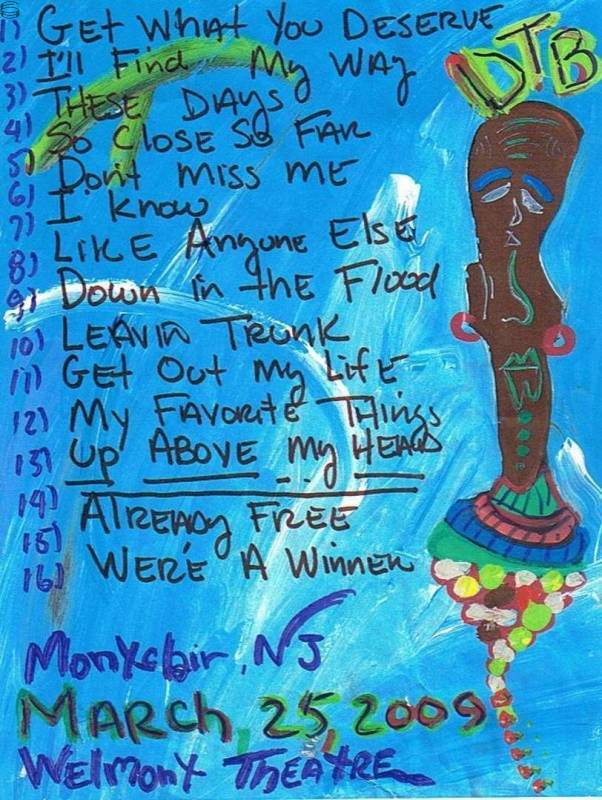 DTB
1) GET WHAT YOU DESERVE
2) I'll Find My WAY
3) THESE DAYS
4) So Close So FAR
5) Don't miss ME
6) I know
7)
8) LIKE Anyone ELSE
9) Down in the Flood
10) LEAVIN TRUNK
11) GET OUT My LIFE
12) My FAVORITE THINGS
13) UP ABOVE My HEAD
14) ALREADY FREE
15)
16) WERE A WINNER
Montclair, NJ
MARCH, 25, 2009
Welmont THEATRE